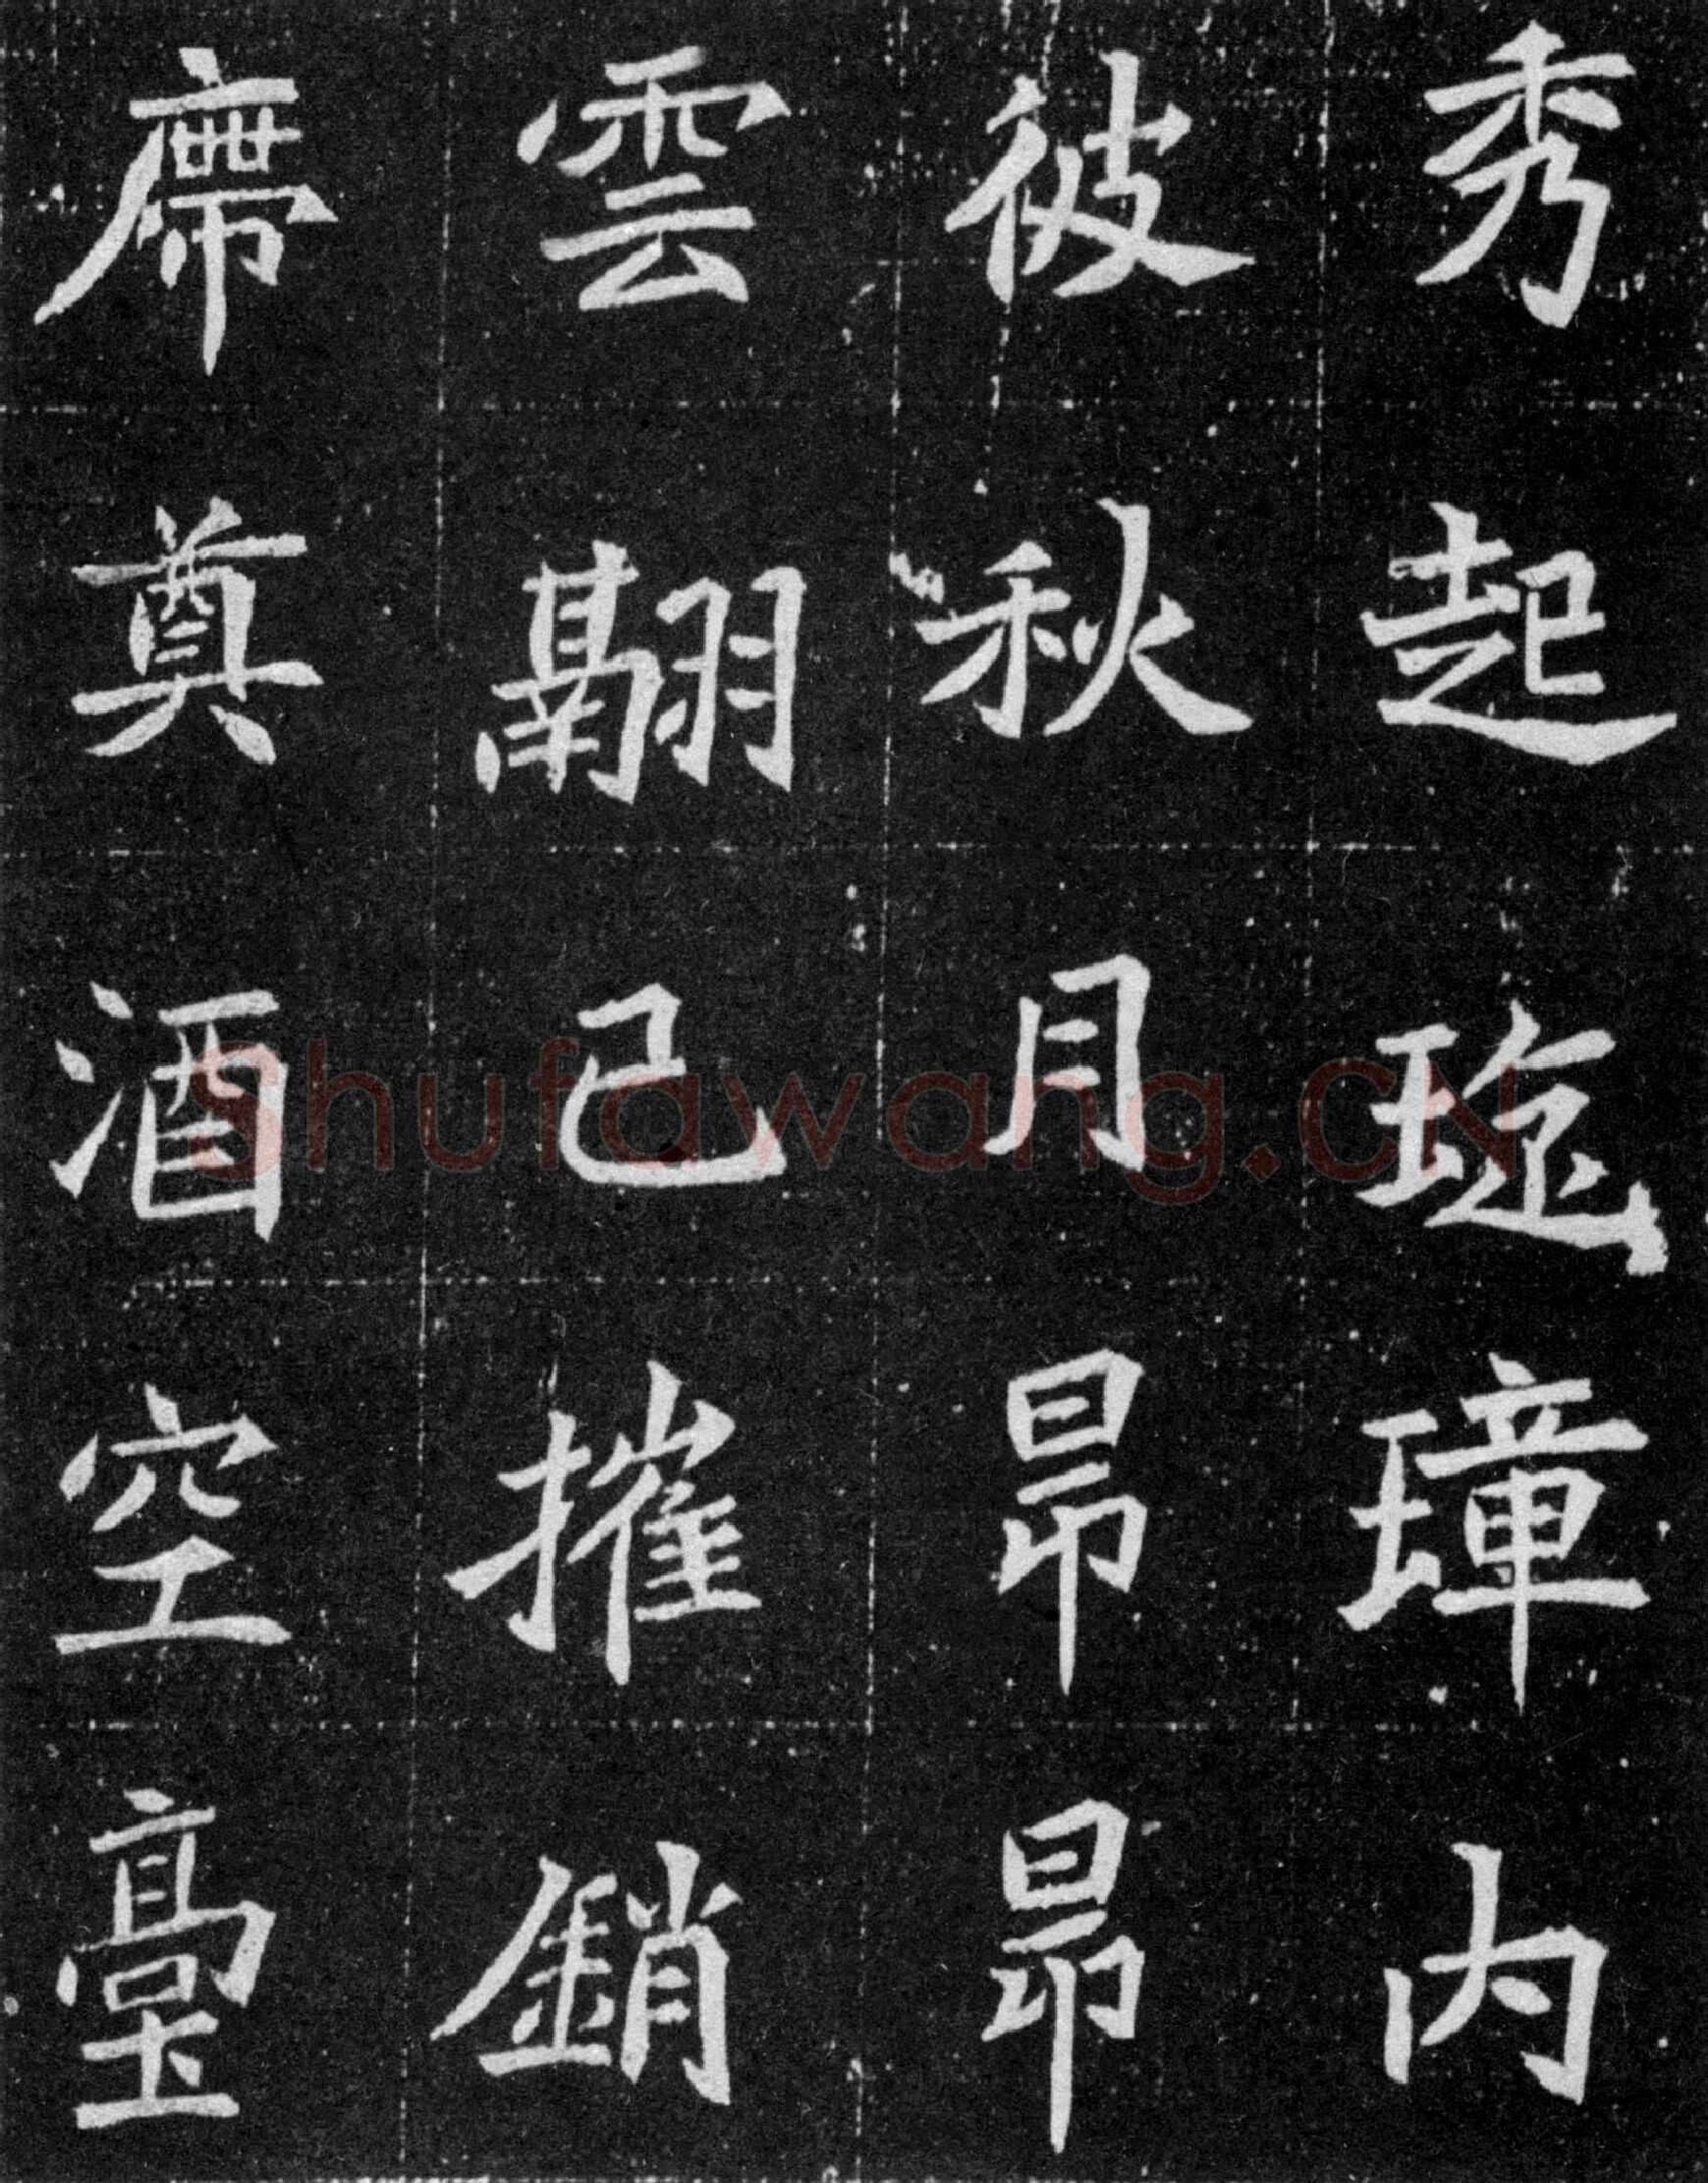 秀起琁璋内
彼秋月昂昂
雲翮已摧銷
席奠酒空臺
Shufawang.CN